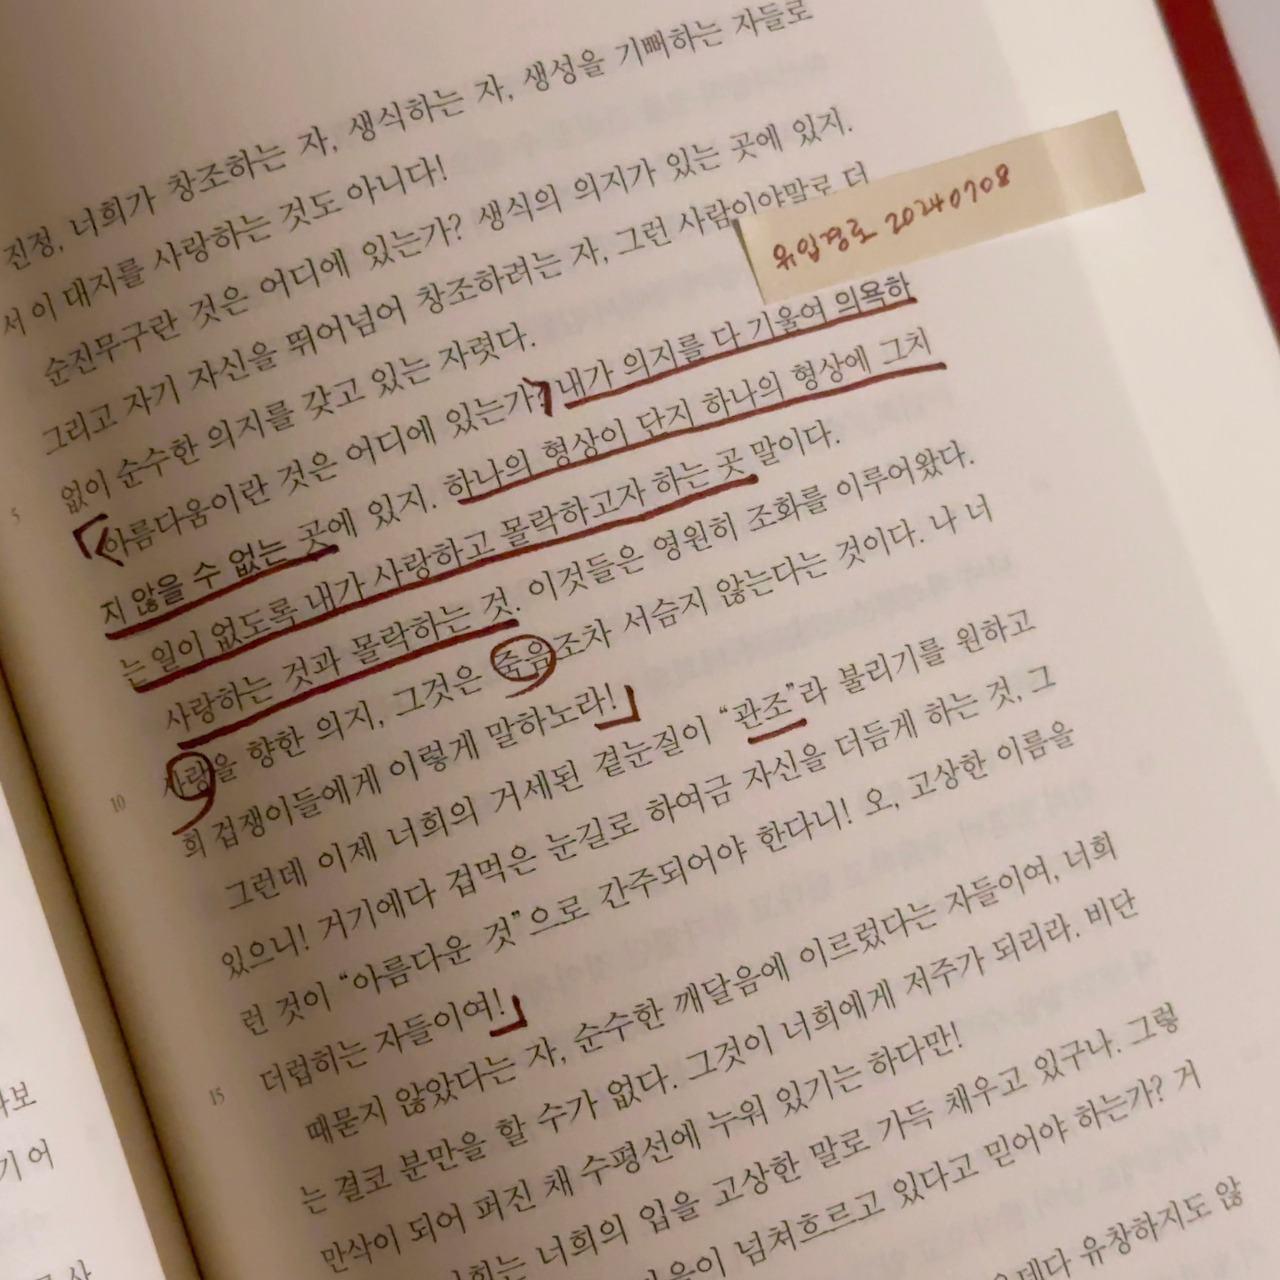 진정, 너희가 창조하는 자, 생식하는 자, 생성을 기뻐하는 자들로
서 이 대지를 사랑하는 것도 아니다!
순진무구란 것은 어디에 있는가? 생식의 의지가 있는 곳에 있지.
그리고 자기 자신을 뛰어넘어 창조하려는 자, 그런 사람이야말로 더
유입경로 20240708
5 없이 순수한 의지를 갖고 있는 자렷다.
아름다움이란 것은 어디에 있는가? 내가 의지를 다 기울여 의욕하
지 않을 수 없는 곳에 있지. 하나의 형상이 단지 하나의 형상에 그치
는 일이 없도록 내가 사랑하고 몰락하고자 하는 곳 말이다.
사랑하는 것과 몰락하는 것. 이것들은 영원히 조화를 이루어왔다.
10 사랑을 향한 의지, 그것은 죽음조차 서슴지 않는다는 것이다. 나 너
희 겁쟁이들에게 이렇게 말하노라!
그런데 이제 너희의 거세된 곁눈질이 “관조”라 불리기를 원하고
있으니! 거기에다 겁먹은 눈길로 하여금 자신을 더듬게 하는 것, 그
런 것이 “아름다운 것”으로 간주되어야 한다니! 오, 고상한 이름을
15 더럽히는 자들이여!
때묻지 않았다는 자, 순수한 깨달음에 이르렀다는 자들이여, 너희
는 결코 분만을 할 수가 없다. 그것이 너희에게 저주가 되리라. 비단
만삭이 되어 퍼진 채 수평선에 누워 있기는 하다만!
너희의 입을 고상한 말로 가득 채우고 있구나. 그렇
넘쳐흐르고 있다고 믿어야 하는가? 거
유창하지도 않